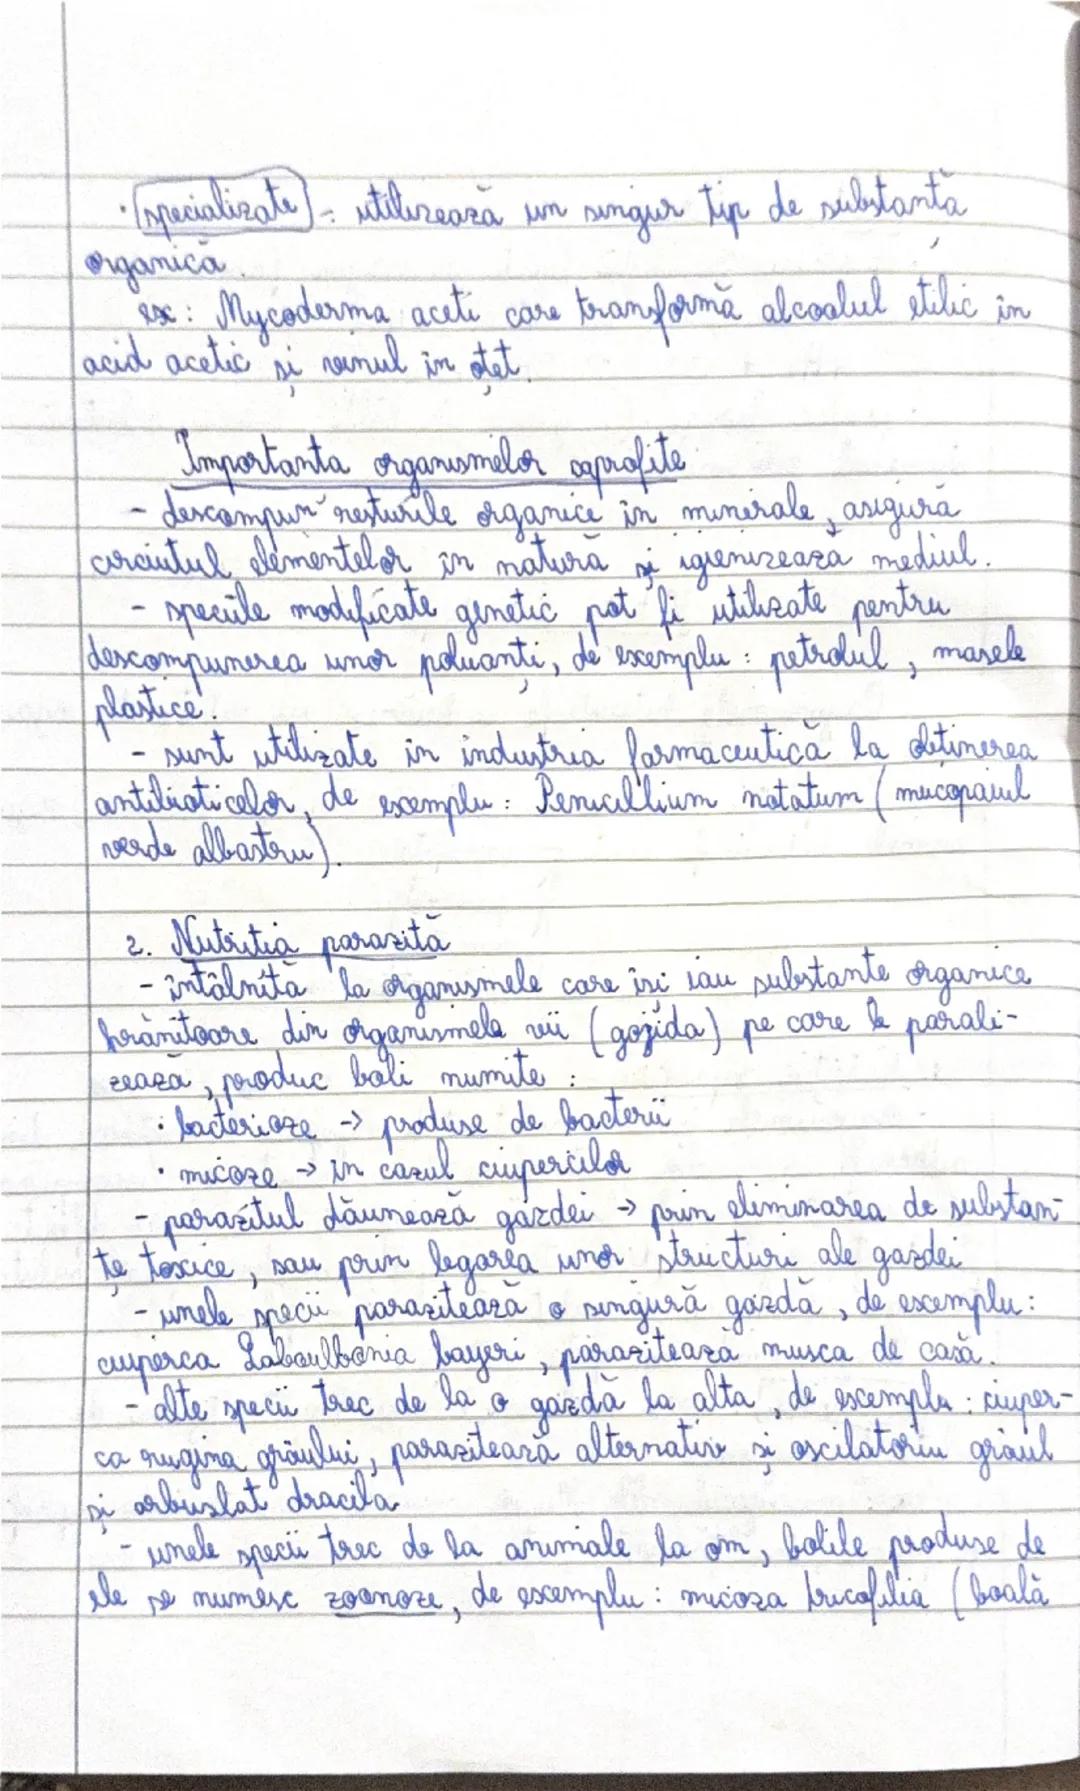 · specializate - utilizează un singur tip de substanță
organică.
ex: Mycoderma aceti care transformă alcoolul etilic în
acid acetic și vinul în oțet.
Importanta organismelor saprofite
- descompun resturile organice în minerale, asigură
circuitul elementelor în natură și igienizează mediul.
- speciile modificate genetic pot fi utilizate pentru
descompunerea unor poluanți, de exemplu: petrolul, masele
plastice.
- sunt utilizate în industria farmaceutică la obtinerea
antibioticelor, de exemplu: Penicillium notatum (mucegaiul
verde albastru).
2. Nutritia parazită
- întâlnită la organismele care isi iau substante organice
hrănitoare din organismele vii (gazda) pe care le parali-
zează, produc boli numite:
· bacterioze -> produse de bacterii
· micoze -> în cazul ciupercilor
- parazitul dăunează gazdei -> prin eliminarea de substan-
țe toxice, sau prin legarea unor structuri ale gazdei
- unele specii parazitează o singură gazdă, de exemplu:
ciuperca Laboulbenia bayeri, parazitează musca de casă.
- alte specii trec de la o gazdă la alta, de exemplu: ciuper-
ca rugina grâului, parazitează alternativ și oscilatoriu grâul
și arbustat dracila
- unele specii trec de la animale la om, bolile produse de
ele se numesc zoonoze, de exemplu: micoza tricofilia (boală